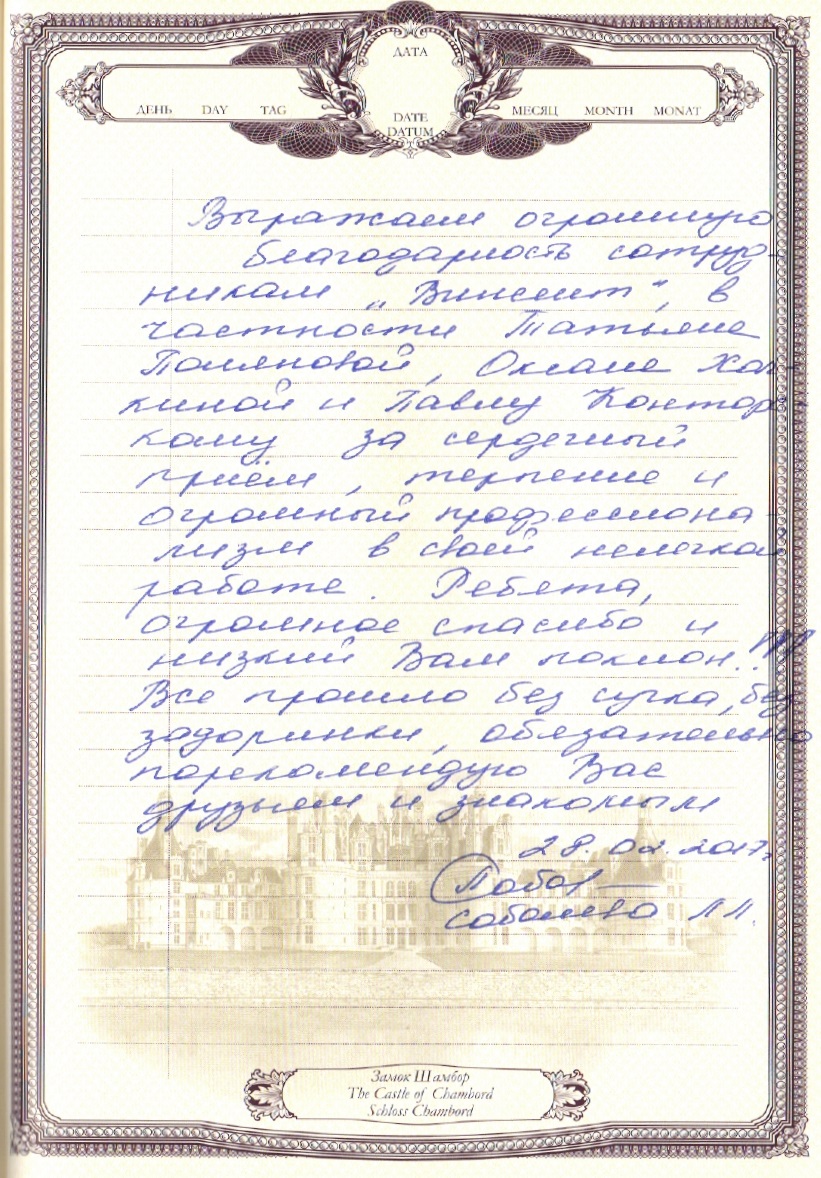 ДАТА
ДЕНЬ DAY TAG
DATE
DATUM
МЕСЯЦ MONTH MONAT
Выражаем огромную
благодарность сотруд-
никам „Винсент", в
частности Татьяне
Поляновой, Оксане
и Павлу
за сердечный
приём, терпение и
огромный профессиона-
лизм в своей нелегкой
работе. Ребята,
огромное спасибо и
низкий Вам поклон!!!
Все прошло без сучка, без
задоринки, обязательно
порекомендую Вас
друзьям и знакомым
28.02.2017г.
Соболева Л.Л.
Замок Шамбор
The Castle of Chambord
Schloss Chambord